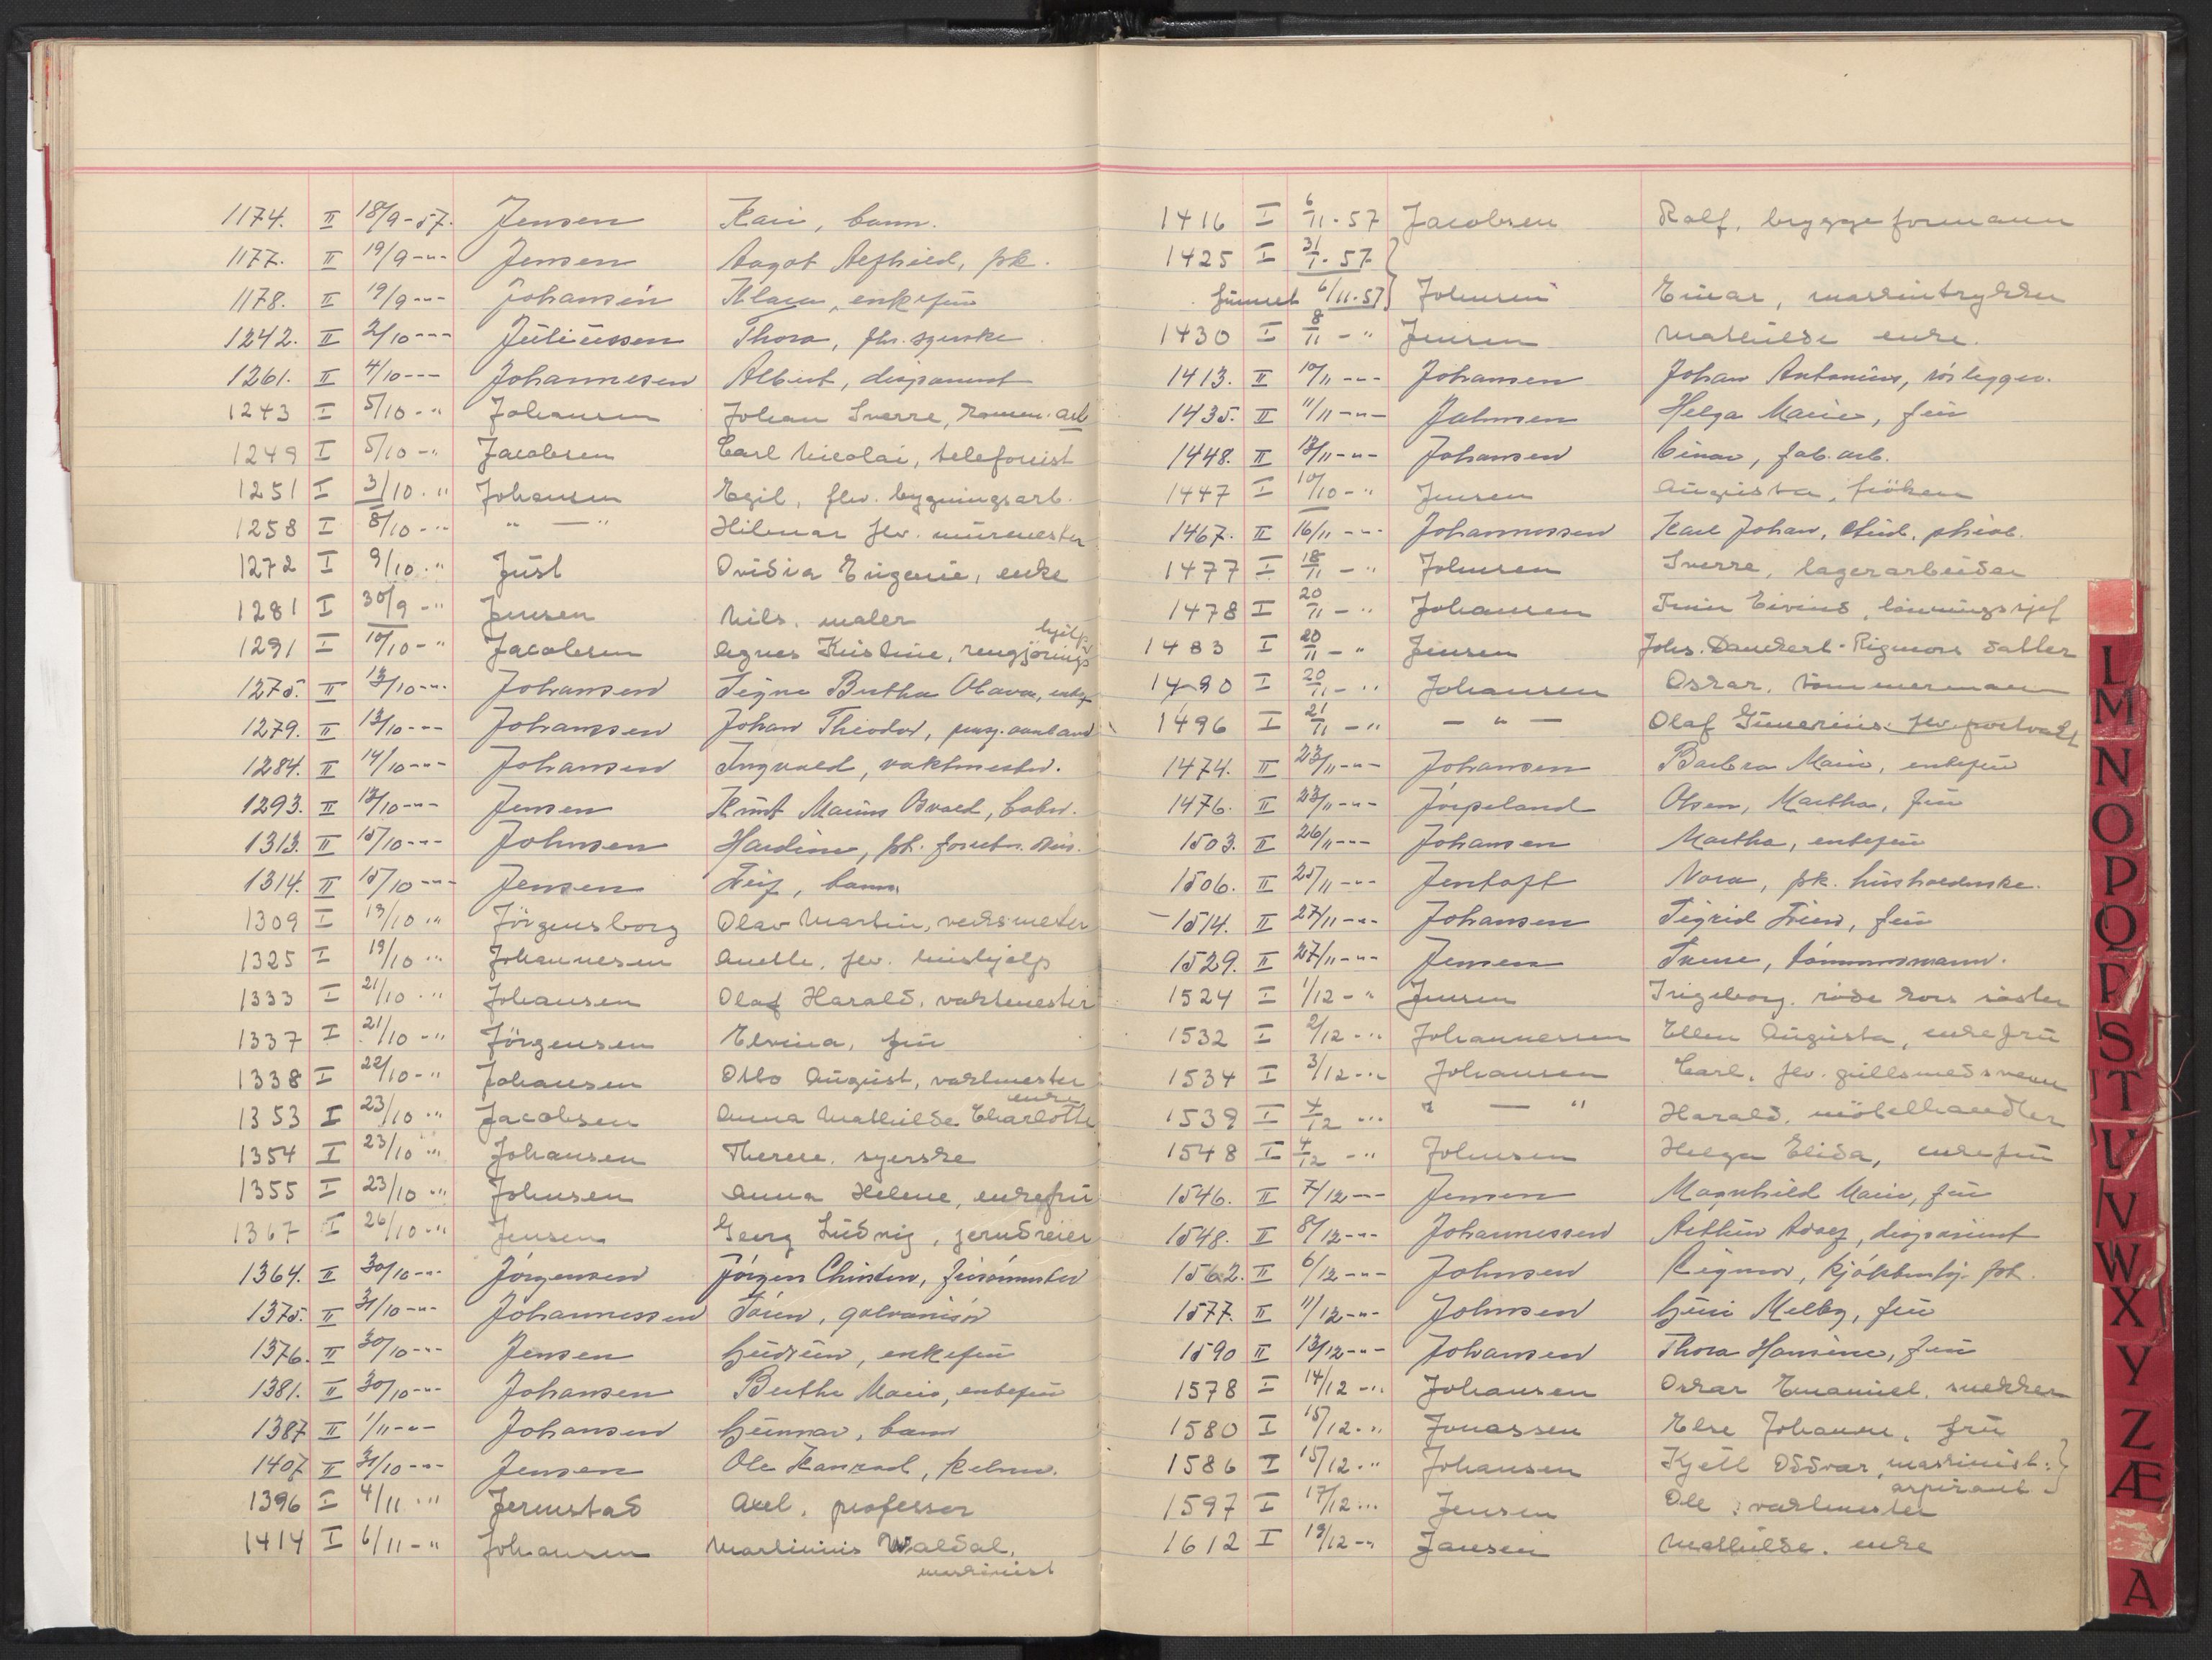 1174. II 18/9-57. Jensen Kari, barn.
1177. II 19/9 -"- Jensen Aagot Alfhild, pk.
1178. II 19/9 -"- Johansen Klara, enkefru
1242. II 2/10 -"- Juliussen Thora, fhv. syerske
1261. II 4/10 -"- Johannesen Albert, disponent
1243 I 5/10 -" Johansen Johan Sverre, komm. arb
1249 I 5/10 -" Jacobsen Carl Nicolai, telefonist
1251 I 3/10 . " Johansen Egil, flv. bygningsarb.
1258 I 8/10 -" " — " Hilmar flv. murmester
1272 I 9/10 . " Just Ovidia Eugenie, enke
1281 I 30/9 -" Jensen Nils. maler
1291 I 10/10 -" Jacobsen Agnes Kristine, rengjørings hjelp
1275. II 12/10 -"- Johansen Signe Bertha Olava, enkef
1279. II 12/10 -"- Johanssen Johan Theodor,
1284. II 14/10 -"- Johansen Ingvald, vaktmester.
1293. II 12/10 -"- Jensen Knut Marius
1313. II 15/10 -"- Johnsen Hardine, pk.
1314. II 15/10 -"- Jensen Leif, barn
1309 I 13/10 " Jörgensborg Olav Martin, verksmester
1325 I 19/10 " Johannesen Anette, flv. hushjelp
1333 I 21/10 . " Johansen Olaf Harald, vaktmester
1337 I 21/10 -" Jörgensen Elvina, fru
1338 I 22/10 -" Johansen Otto August, vaktmester
1353 I 23/10 " Jacobsen Anna Mathilde Charlotte enke
1354 I 23/10 " Johansen Therese. syerske
1355 I 23/10 " Johnsen Anna Helene, enkefru
1367 I 26/10 " Jensen Georg Ludvig, jerndreier
1364. II 30/10 -"- Jörgensen Jörgen Christen, frisörmester
1375. II 31/10 -"- Johannessen Sören, galvanisör
1376. II 30/10 -"- Jensen Gudrun, enkefru
1381. II 30/10 -"- Johansen Berthe Marie, enkefru
1387 II 1/11 -"- Johansen Gunnar, barn
1407 II 31/10 -"- Jensen Ole Konrad, kelner.
1396 I 4/11 " Jermstad Axel. professor
1414 I 6/11 -" Johansen Martinius Waldal,
maskinist
1416 I 6/11 - 57 Jacobsen Rolf, bryggeformann
1425 I 31/1 - 57
funnet 6/11-57 Johnsen Einar, maskintrykker
1430 I 8/11 -" Jensen Mathilde enke.
1413. II 10/11 -"- Johansen Johan Antonius, rörlegger.
1435. II 11/11 -"- Johnsen Helga Marie, fru
1448. II 13/11 -"- Johansen Einar, fab. arb.
1447 I 10/10 -" Jensen Augusta, fröken
1467. II 16/11 -"- Johannessen Karl Johan, stud. philol.
1477 I 18/11 -" Johnsen Sverre, lagerarbeider
1478 I 20/11 -" Johansen Finn Eivind, lönningssjef
1483 I 20/11 -" Jensen Johs. Danckert - Rigmors datter
1490 I 20/11 -" Johansen Oskar, tömmermann
1496 I 21/11 -" — " — Olaf Gunerius. flv.
1474. II 23/11 -"- Johansen Barbra Marie, enkefru
1476. II 23/11 -"- Jörpeland Olsen, Martha, fru
1503. II 26/11 -"- Johansen Martha, enkefru
1506. II 25/11 -"- Jentoft Nora, pk. husholderske.
1514. II 27/11 -"- Johansen Sigrid, fru
1529. II 27/11 -"- Jensen tömmermann.
1524 I 1/12 -" Jensen Ingeborg. röde kors söster
1532 I 2/12 -" Johannessen Ellen Augusta, enkefru
1534 I 3/12 -" Johansen Carl. flv. gullsmedsvenn
1539 I 4/12 " " — " Harald. möbelhandler
1548 I 4/12 -" Johnsen Helga Elida, enkefru
1546. II 7/12 -"- Jensen Magnhild Marie, fru
1548. II 8/12 -"- Johannessen disponent
1562. II 6/12 -"- Johnsen Rigmor, kjökkenhj. pk.
1577. II 11/12 -"- Johnsen Guri Melby, fru
1590 II 13/12 -"- Johansen Thora Hansine, fru
1578 I 14/12 -" Johansen Oskar Emanuel, snekker
1580 I 15/12 . " Jonassen Else Johanne, fru
1586 I 15/12 . " Johansen Kjell Oddvar, maskinist-
aspirant -
1597 I 17/12 " Jensen Ole : vaktmester
1612 I 19/12 -" Jansen Mathilde. enke
L
M
N
O
P
Q
R
S
T
U
V
W
X
Y
Z
Æ
A